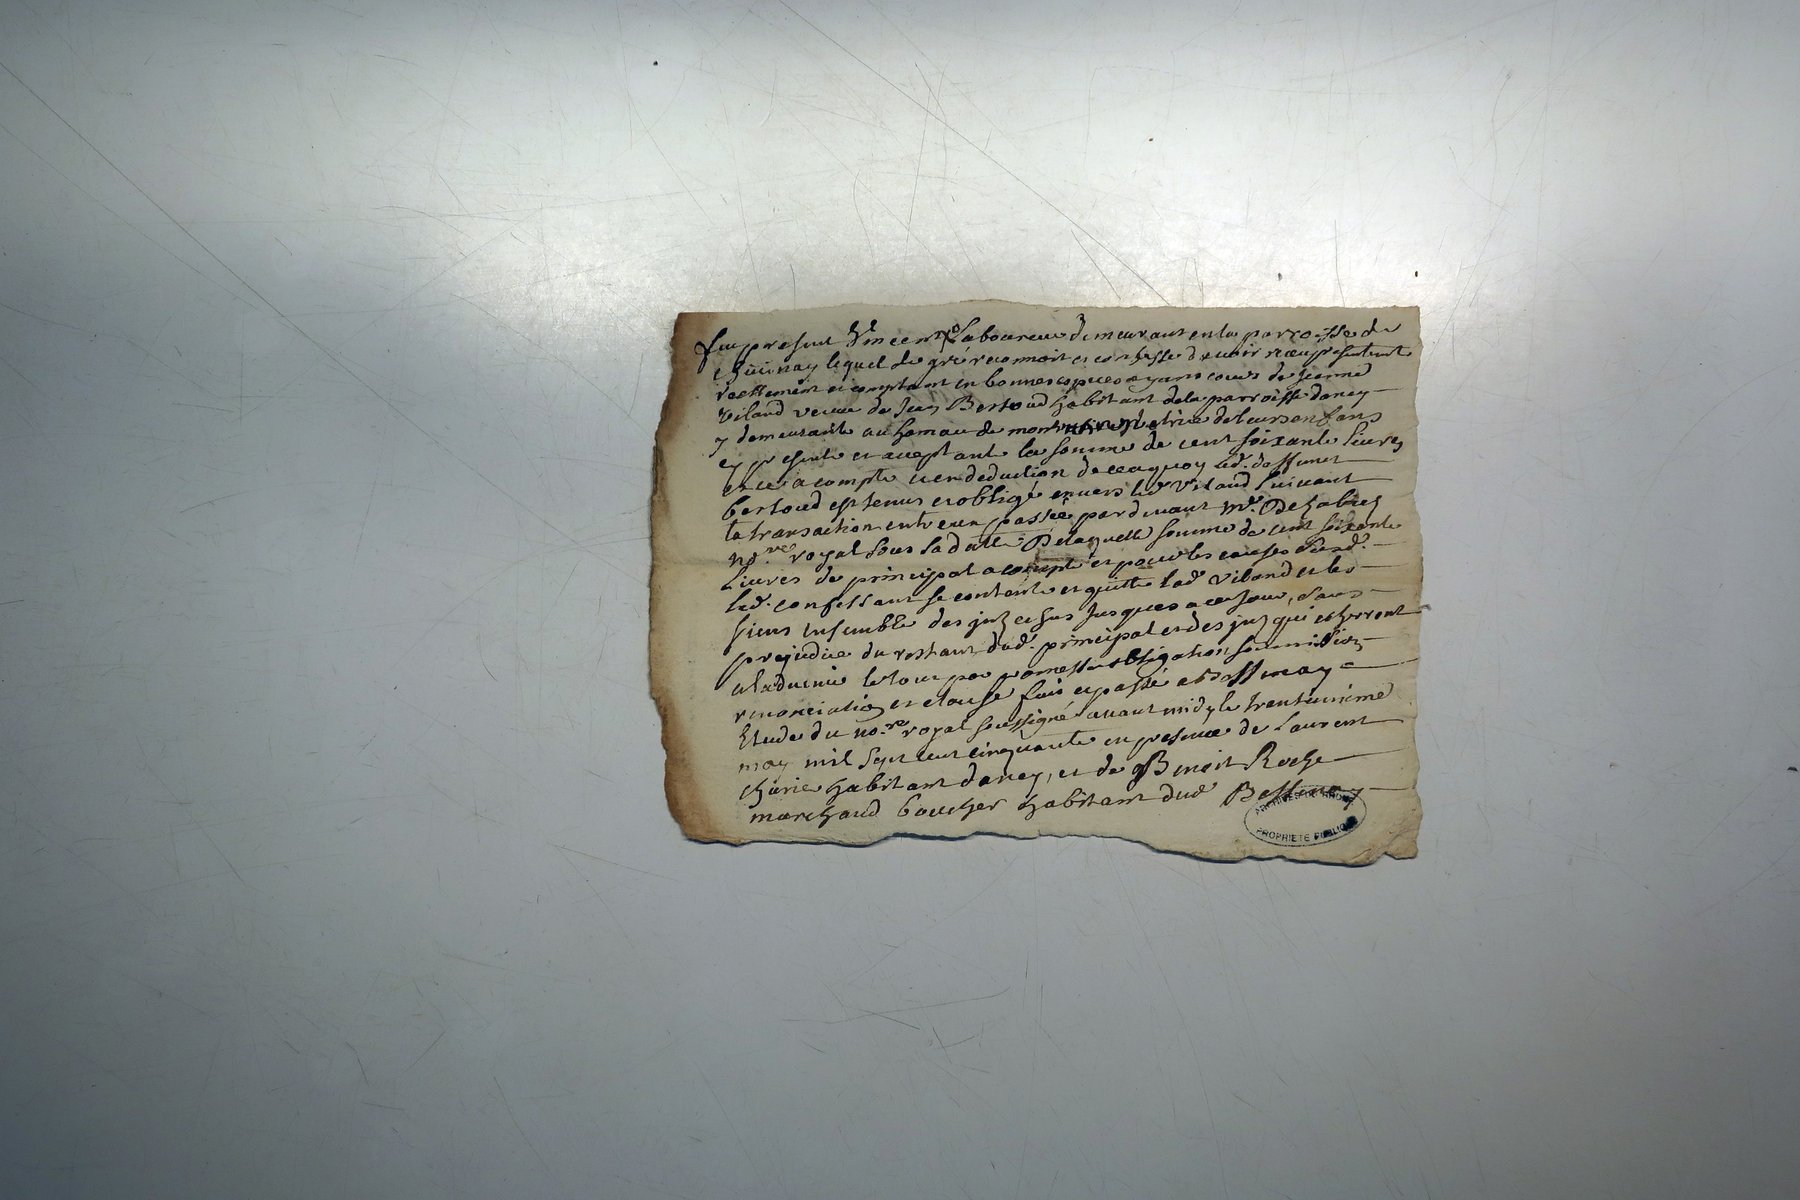 fut present Vincent laboureur demeurant en la parroisse de
lequel de gré reconnoit et confesse d'avoir receu presentement
reellement et comptant en bonnes especes ayans cours de Jeanne
Viland veuve de Jean Bertoud habitant de la parroisse dancy
y demeurante au hameau de de leurs enfans
cy presente et acceptante la somme de cent soixante livres
et ce a compte et en deduction de ceaquoy led. deffunct
bertoud est tenus et obligé envers led Viland suivant
la transaction entre eux passée pardevant Me. Dechabiel
nore. royal sous sa datte Delaquelle somme de cent soixante
livres de principal a compte et pour les causes
led. confessant se contente et quitte lad Viland et les
siens ensemble des jusques a ce jour, sans
prejudice du restant dud. principal et des qui echerront
a ladvenir le tout par promesse obligation soummission
renonciation et clause fait et passé a Bessenay
Etude du nore. royal soussigné avant midy le trentunieme
may mil sept cent cinquante en presence de Laurent
habitant dancy, et de Benoit Roche
marchand boucher habitant dud Bessenay
ARCHIVES DU RHONE
PROPRIETE PUBLIQUE